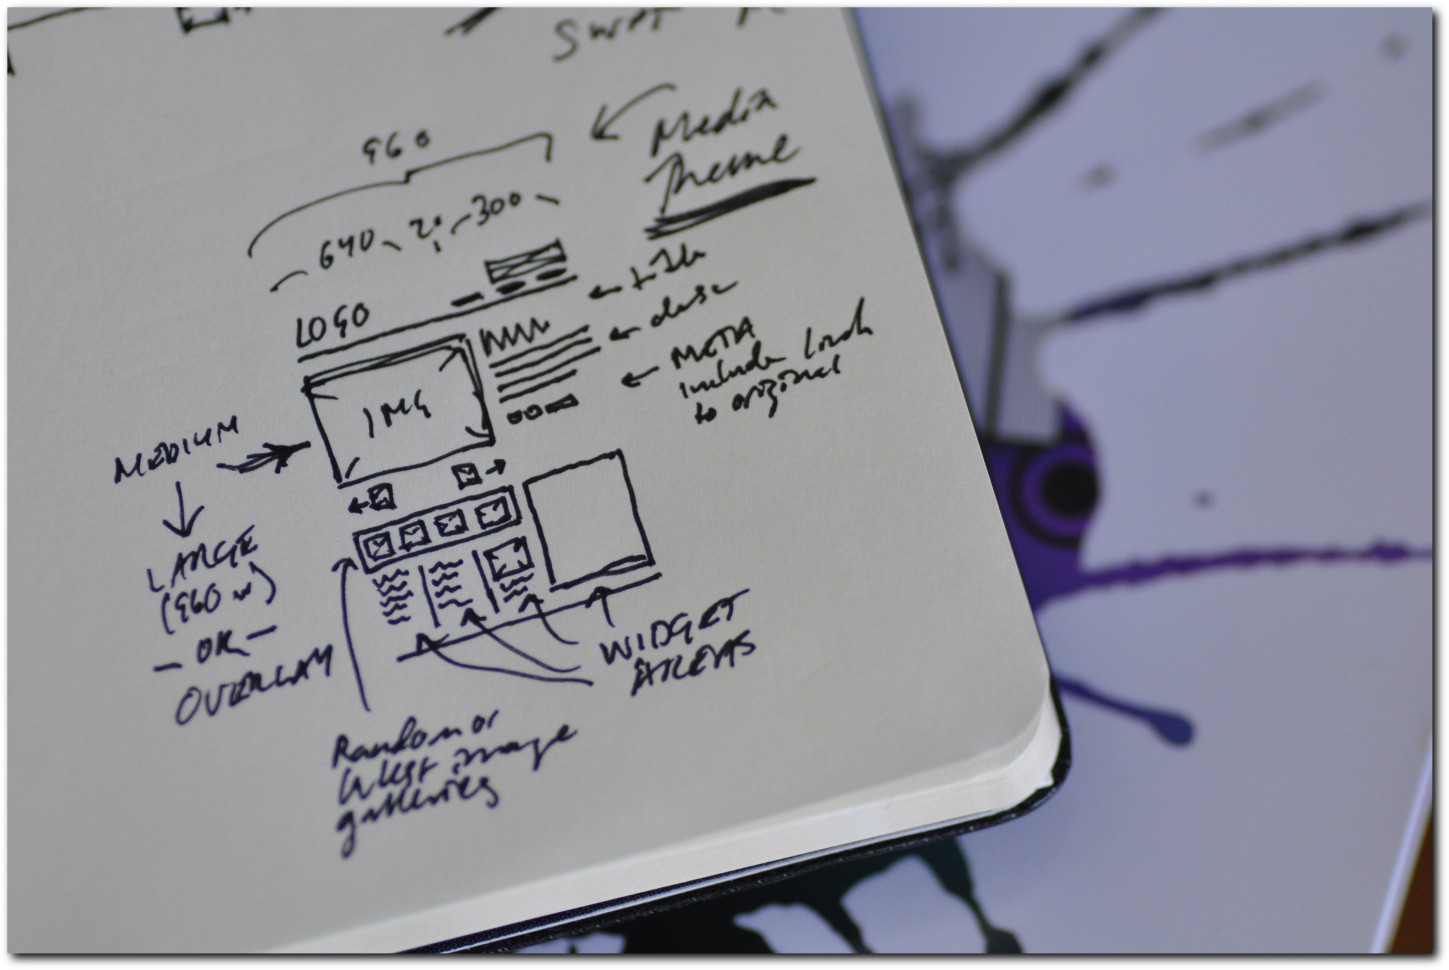 960
Media
Theme
640 20 300
LOGO
title
desc
META
include link
to original
IMG
MEDIUM
LARGE
(960 w)
- OR -
OVERLAY
WIDGET
AREAS
Random or
latest image
galleries